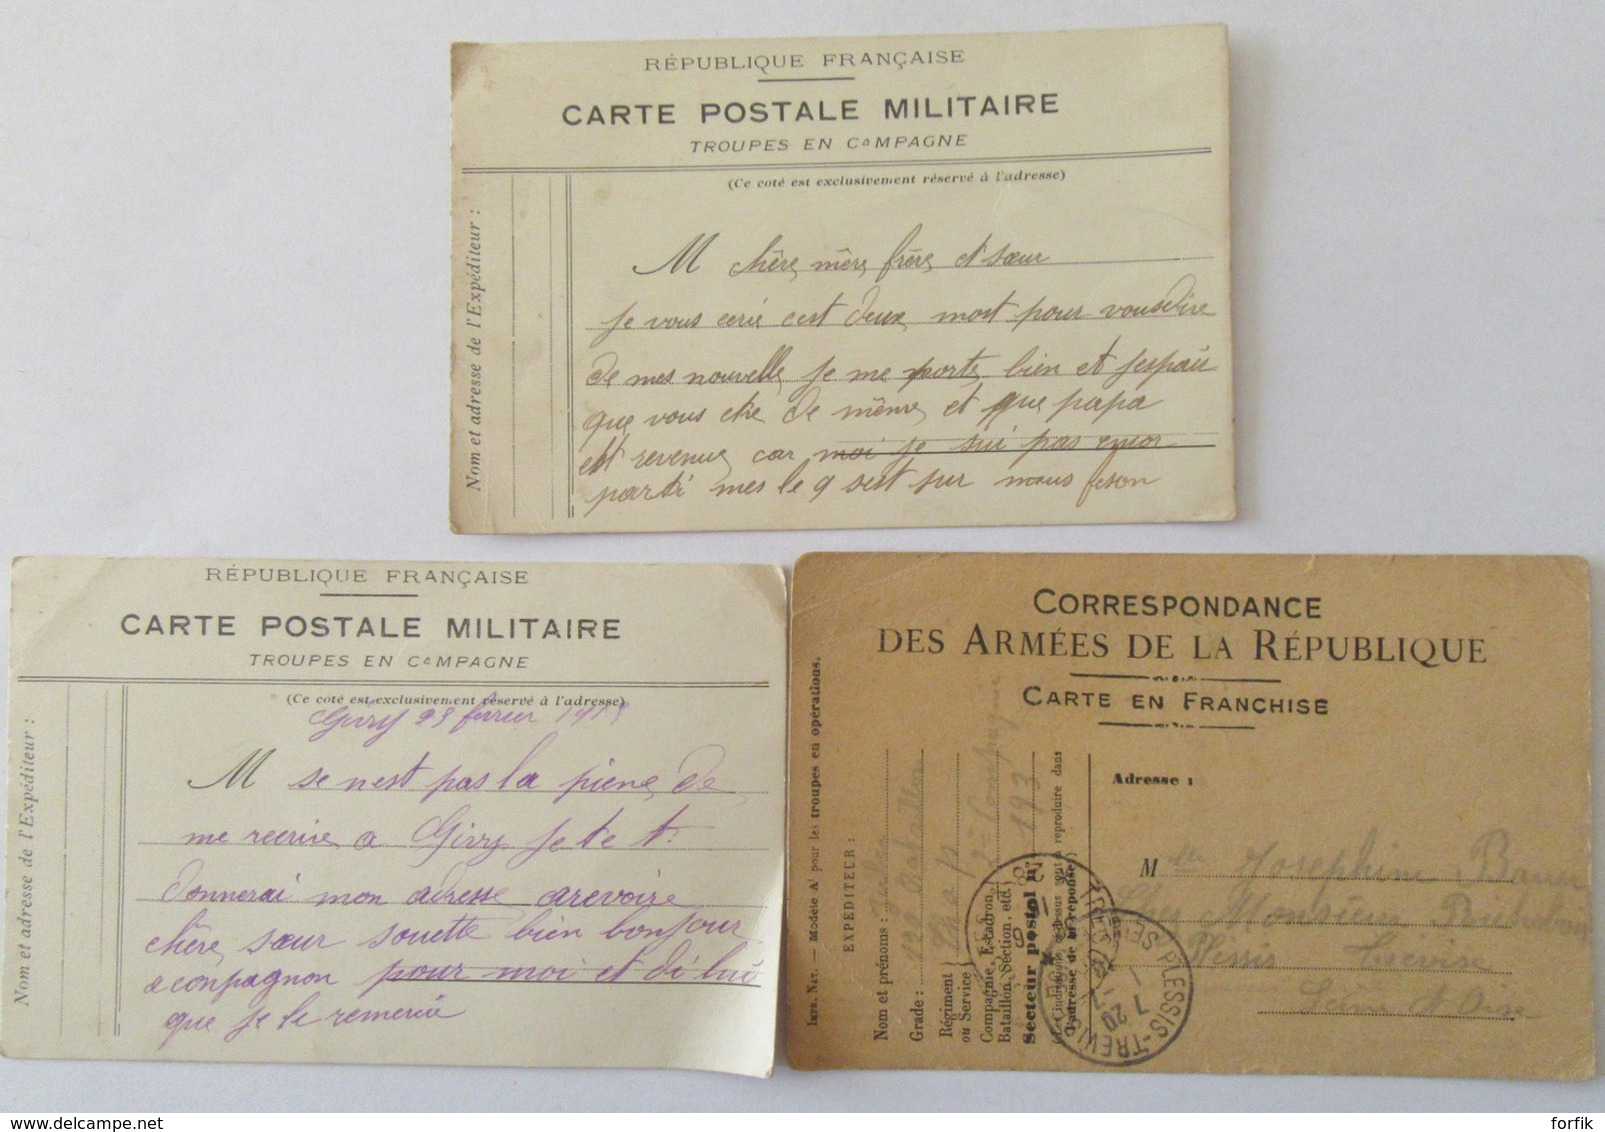 RÉPUBLIQUE FRANÇAISE
CARTE POSTALE MILITAIRE
TROUPES EN CAMPAGNE
(Ce côté est exclusivement réservé à l'adresse)
Nom et adresse de l'Expéditeur :
M chère mère frère et sœur
je vous ecrie cest deux most pour vousdire
de mes nouvelle je me porte bien et jespair
que vous etre de même et que papa
est revenue car moi je sui pas encor
parti mes le 9 sest sur nous feson
RÉPUBLIQUE FRANÇAISE
CARTE POSTALE MILITAIRE
TROUPES EN CAMPAGNE
(Ce côté est exclusivement réservé à l'adresse)
Givry 23 fevrier 1915
Nom et adresse de l'Expéditeur :
M se nest pas la piene de
me recrire a Givry je te t.
donnerai mon adresse arevoire
chère sœur souette bien bonjour
a conpagnon pour moi et di lui
que je le remercie
CORRESPONDANCE
DES ARMÉES DE LA RÉPUBLIQUE
CARTE EN FRANCHISE
IMPR. NAT. — Modèle A¹ pour les troupes en opérations.
EXPÉDITEUR :
Nom et prénoms :
Grade : Bataillon
Régiment
ou Service
Compagnie, Escadron,
Bataillon, Section, etc. Compagnie
Secteur postal n° 193
(Les indications ci-dessus sont à reproduire dans
l'adresse de la réponse.)
Adresse :
M Josephine Bauer
Chez Monsieur
Plessis Trevise
Seine et Oise
PLESSIS-TREVISE
7 20